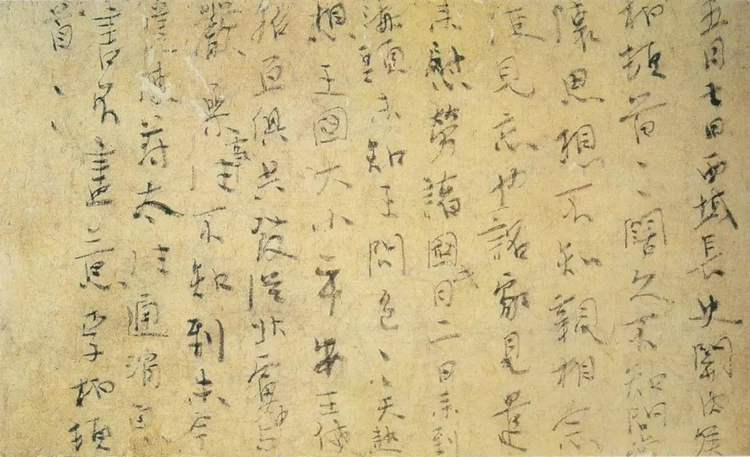 五月七日西域長史關内侯
柏頓首〻闊久不知問常
懷思想不知親相念
便見忘也詔家見遣
來慰勞諸國此月二日來到
海頭未知王問邑〻天熱
想王國大小平安王使
招亘俱共發從北虜中与
嚴參事往不知到未今
遣使苻太往通消息
書不盡意李柏頓
首〻